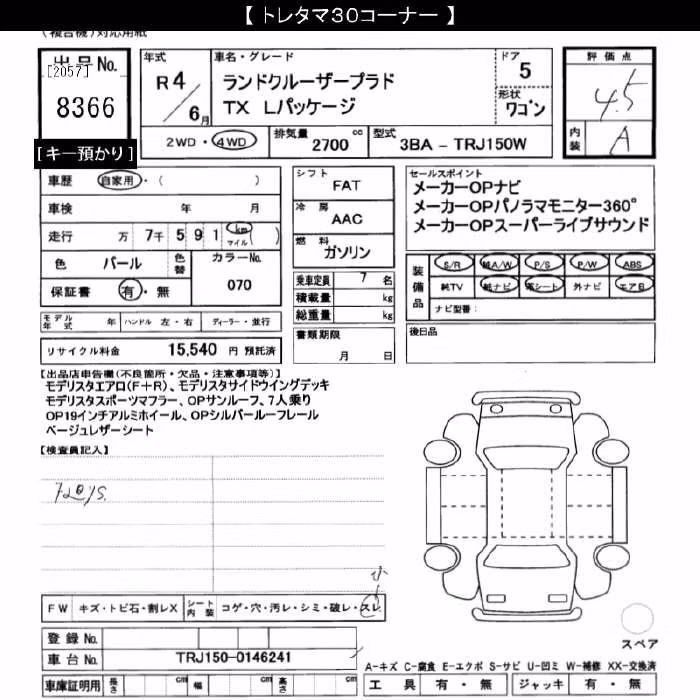 【 トレタマ30コーナー 】
(複合機)対応用紙
出品No.
[2057]
8366
[キー預かり]
年式
R 4/6月
車名・グレード
ランドクルーザープラド
TX Lパッケージ
ドア
5
形状
ワゴン
評価点
4.5
内装
A
2WD・4WD
排気量
2700 cc
型式
3BA - TRJ150W
車歴 自家用・( )
車検 年 月
走行 万 7千 5 9 1 km マイル ( )
色 パール 色替
カラーNo.
070
保証書 有・無
シフト
FAT
冷房
AAC
燃料
ガソリン
乗車定員 7 名
積載量 kg
総重量 kg
書類期限
月 日
セールスポイント
メーカーOPナビ
メーカーOPパノラマモニター360°
メーカーOPスーパーライブサウンド
装備品
S/R 純A/W P/S P/W ABS
純TV 純ナビ 革シート 外ナビ エアB
ナビ型番:
後日品
モデル年式 年 ハンドル 左・右 ディーラー・並行
リサイクル料金 15,540 円 預託済
【出品店申告欄(不良箇所・欠品・注意事項等)】
モデリスタエアロ(F+R)、モデリスタサイドウイングデッキ
モデリスタスポーツマフラー、OPサンルーフ、7人乗り
OP19インチアルミホイール、OPシルバールーフレール
ベージュレザーシート
【検査員記入】
小
FW キズ・トビ石・割レX シート内装 コゲ・穴・汚レ・シミ・破レ・スレ
登録No.
車台No. TRJ150-0146241
車庫証明用 長さ cm 幅 cm 高さ cm
スペア
A-キズ C-腐食 E-エクボ S-サビ U-凹ミ W-補修 XX-交換済
工具 有・無 ジャッキ 有・無